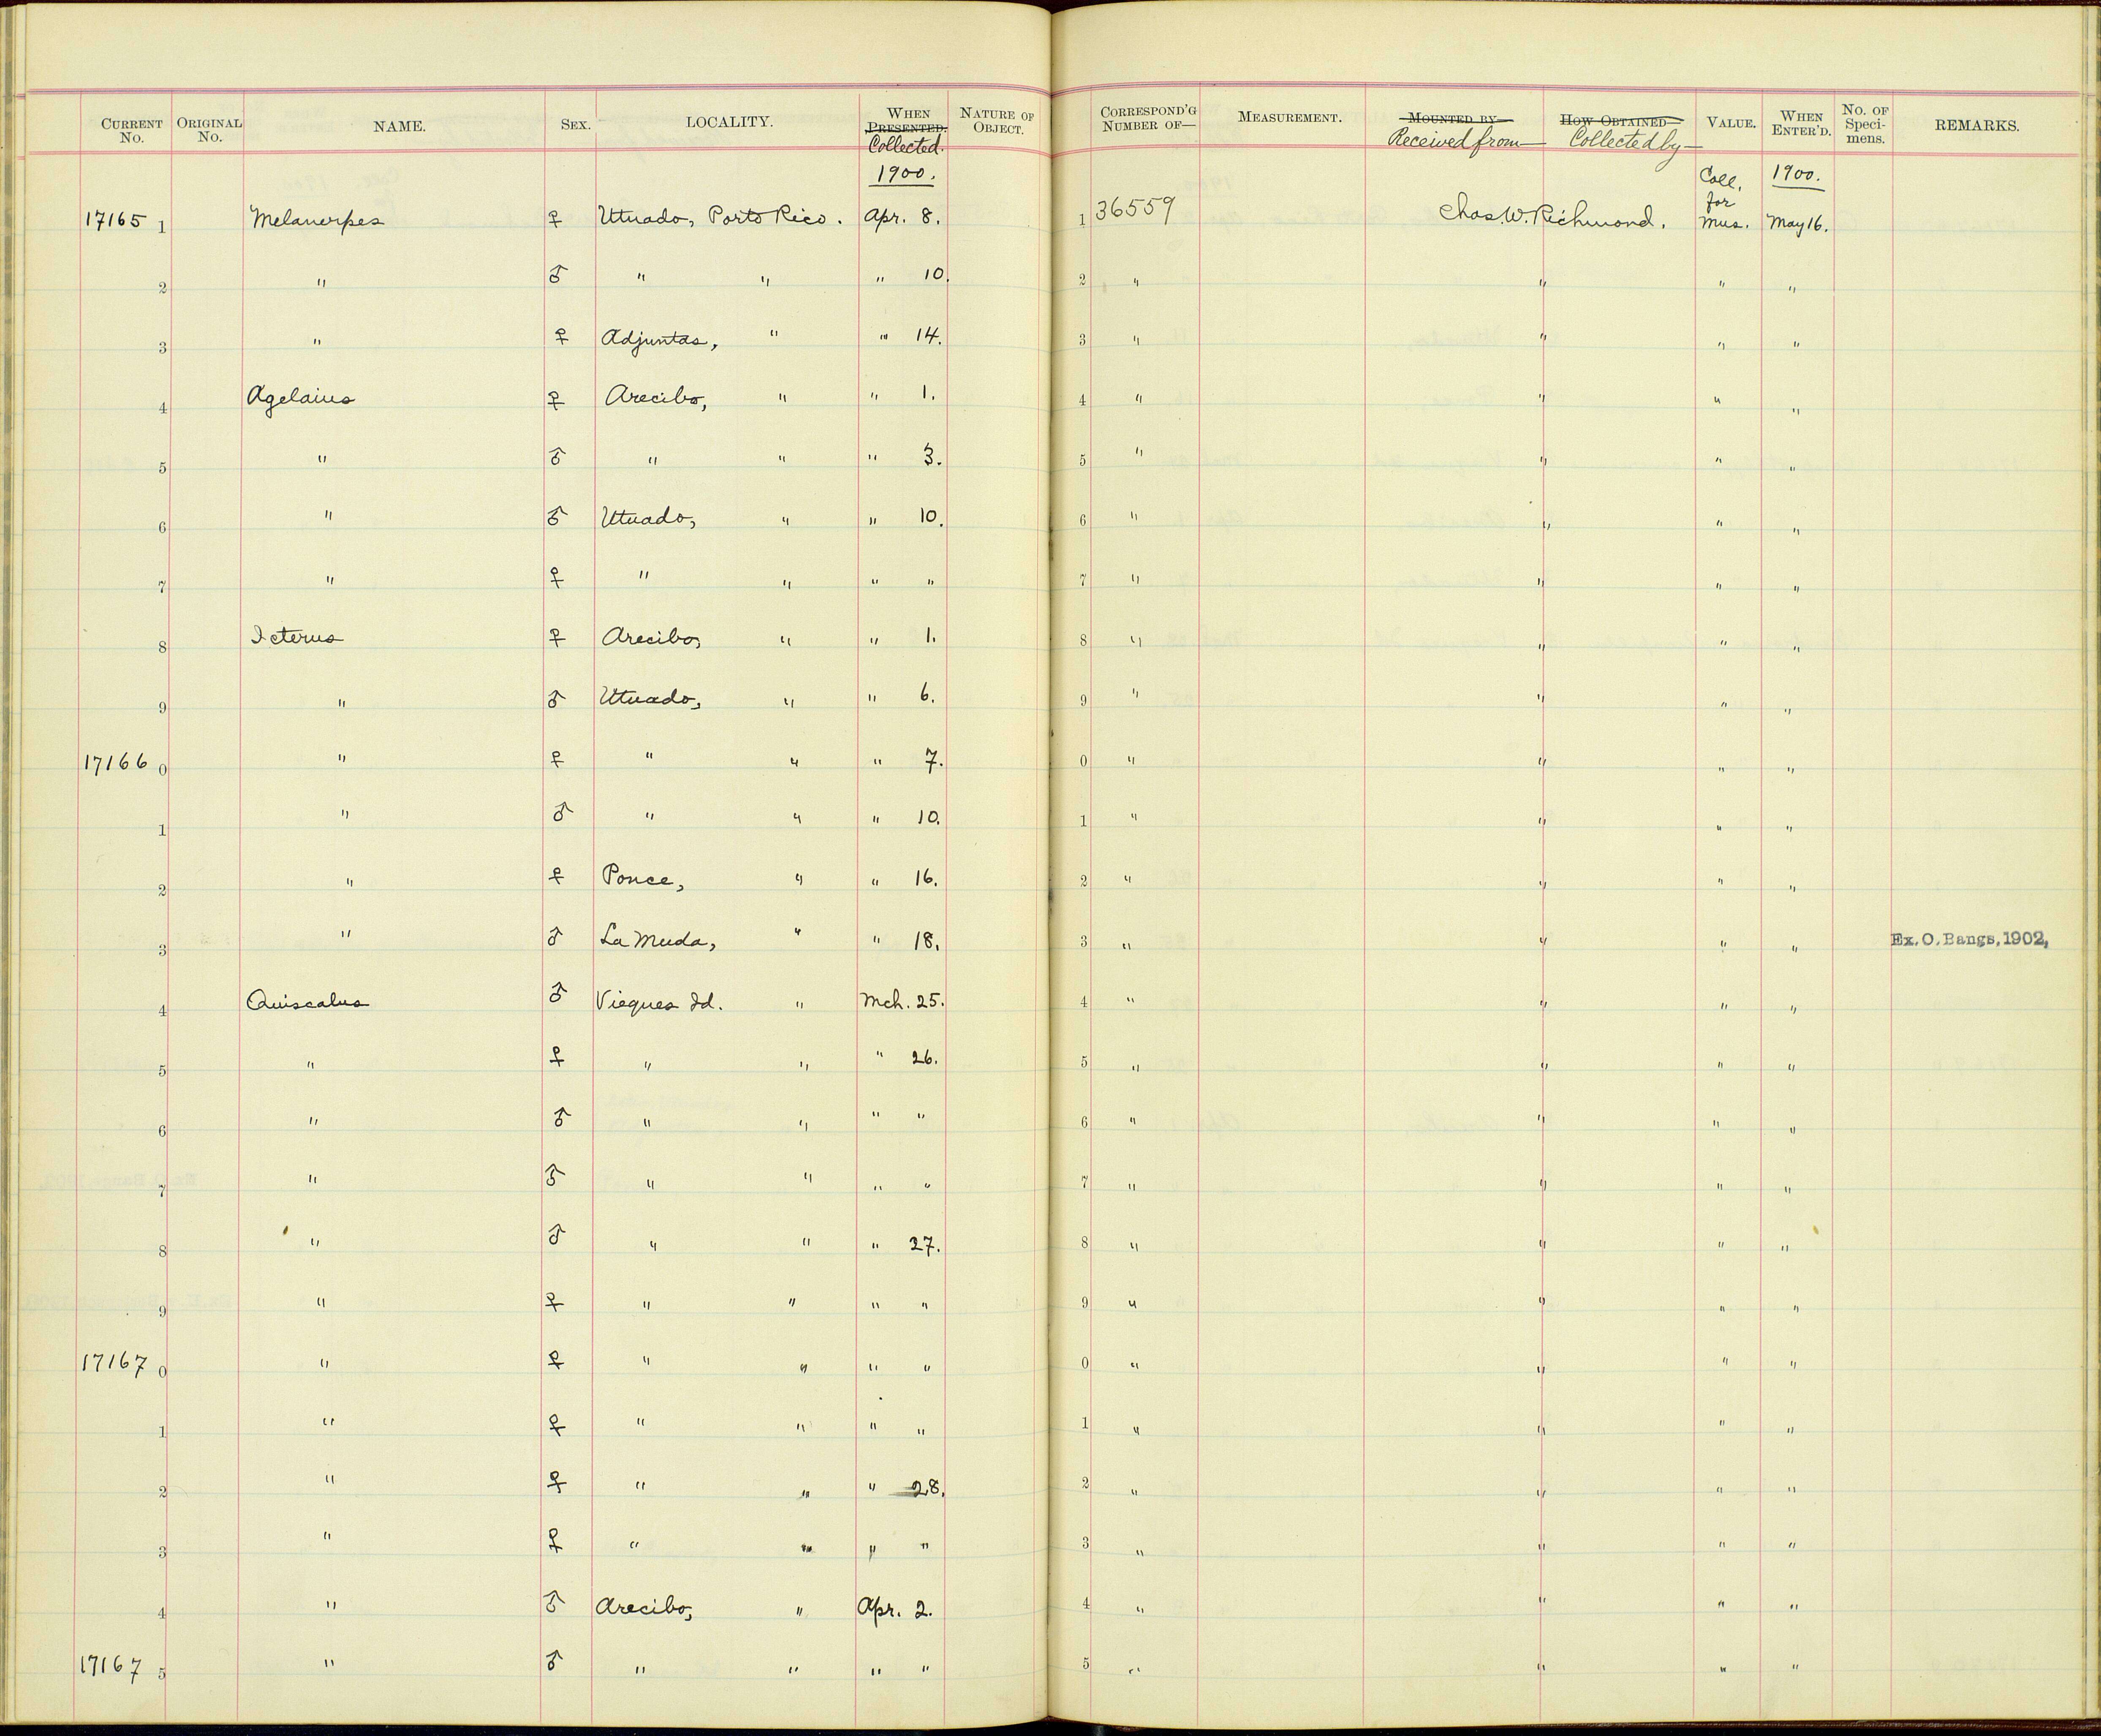 CURRENT No. ORIGINAL No. NAME. SEX. LOCALITY. WHEN PRESENTED. Collected. NATURE OF OBJECT. CORRESPOND'G NUMBER OF— MEASUREMENT. MOUNTED BY— Received from— HOW OBTAINED— Collected by— VALUE. WHEN ENTER'D. No. OF Speci-mens. REMARKS.
1900. Coll. for 1900.
17165 1 Melanerpes ♀ Utuado, Porto Rico. Apr. 8. 1 36559 Chas. W. Richmond. Mus. May 16.
2 " ♂ " " " 10. 2 " " " "
3 " ♀ Adjuntas, " " 14. 3 " " " "
4 Agelaius ♀ Arecibo, " " 1. 4 " " " "
5 " ♂ " " " 3. 5 " " " "
6 " ♂ Utuado, " " 10. 6 " " " "
7 " ♀ " " " " 7 " " " "
8 Icterus ♀ Arecibo, " " 1. 8 " " " "
9 " ♂ Utuado, " " 6. 9 " " " "
17166 0 " ♀ " " " 7. 0 " " " "
1 " ♂ " " " 10. 1 " " " "
2 " ♀ Ponce, " " 16. 2 " " " "
3 " ♂ La Muda, " " 18. 3 " " " " Ex. O. Bangs, 1902,
4 Quiscalus ♂ Vieques Id. " Mch. 25. 4 " " " "
5 " ♀ " " " 26. 5 " " " "
6 " ♂ " " " " 6 " " " "
7 " ♂ " " " " 7 " " " "
8 " ♂ " " " 27. 8 " " " "
9 " ♀ " " " " 9 " " " "
17167 0 " ♀ " " " " 0 " " " "
1 " ♀ " " " " 1 " " " "
2 " ♀ " " " 28. 2 " " " "
3 " ♀ " " " " 3 " " " "
4 " ♂ Arecibo, " Apr. 2. 4 " " " "
17167 5 " ♂ " " " " 5 " " " "